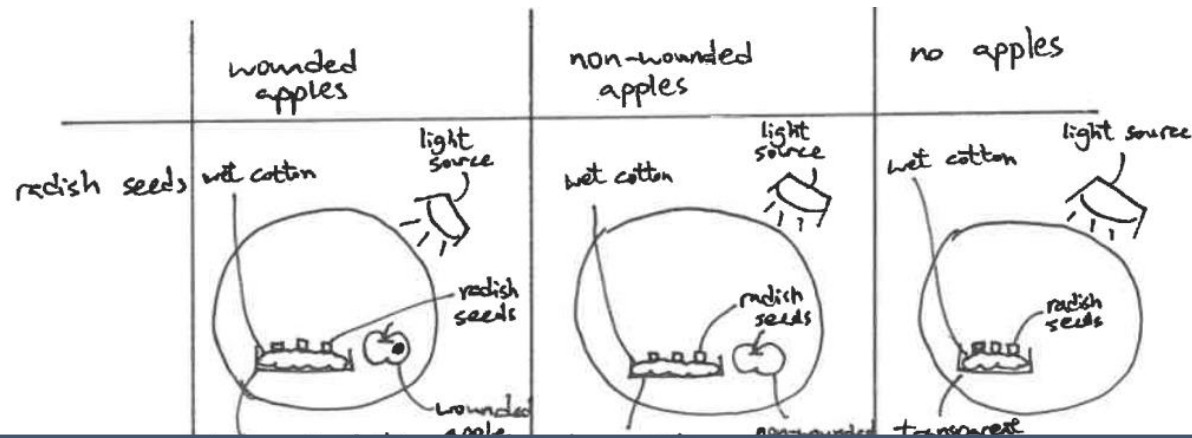 wounded
apples
non-wounded
apples
no apples
radish seeds
wet cotton
light
source
radish
seeds
wounded
apple
wet cotton
light
source
radish
seeds
non-wounded
wet cotton
light source
radish
seeds
transparent